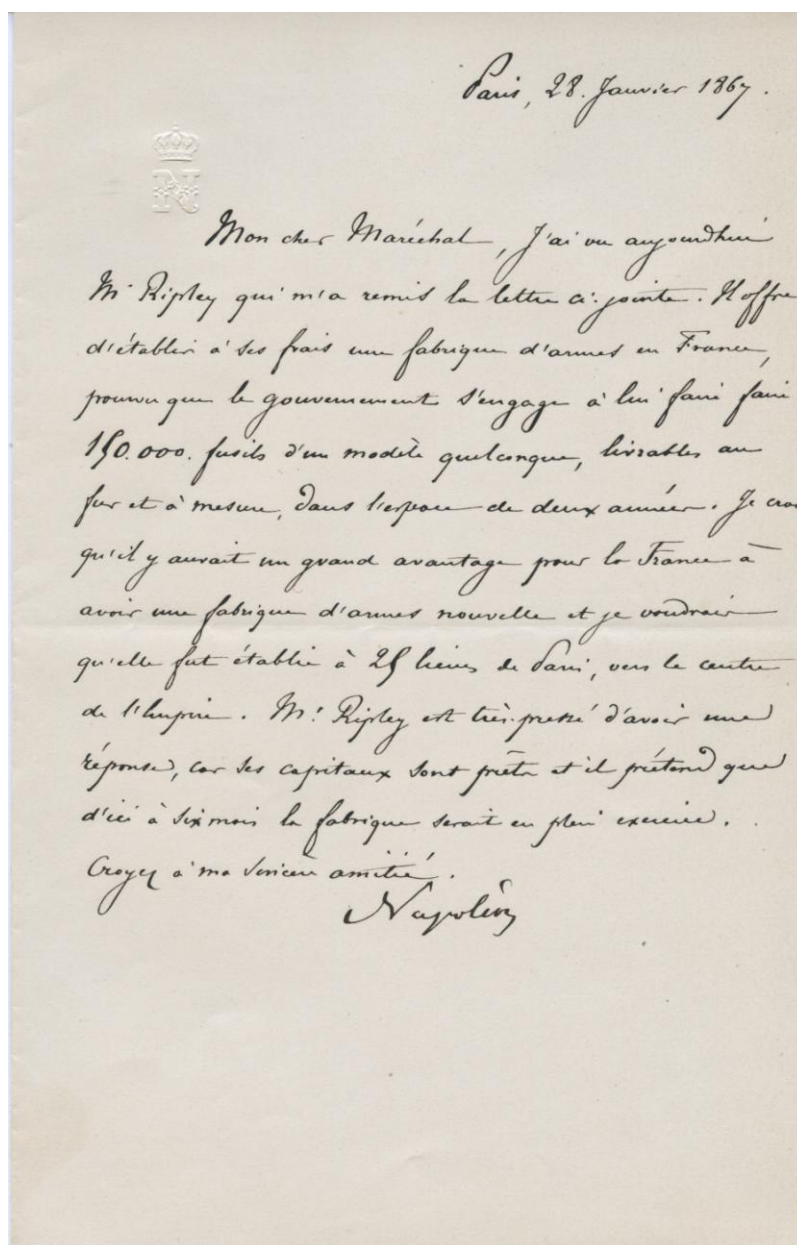 Paris, 28. Janvier 1867.
N
Mon cher Maréchal, J'ai vu aujourd'hui
Mr Ripley qui m'a remis la lettre ci-jointe. Il offre
d'établir à ses frais une fabrique d'armes en France,
pourvu que le gouvernement s'engage à lui faire faire
150.000. fusils d'un modèle quelconque, livrables au
fur et à mesure, dans l'espace de deux années. Je crois
qu'il y aurait un grand avantage pour la France à
avoir une fabrique d'armes nouvelle et je voudrais
qu'elle fut établie à 25 lieues de Paris, vers le centre
de l'Empire. Mr. Ripley est très-pressé d'avoir une
réponse, car ses capitaux sont prêts et il prétend que
d'ici à six mois la fabrique serait en plein exercice.
Croyez à ma sincère amitié.
Napoléon